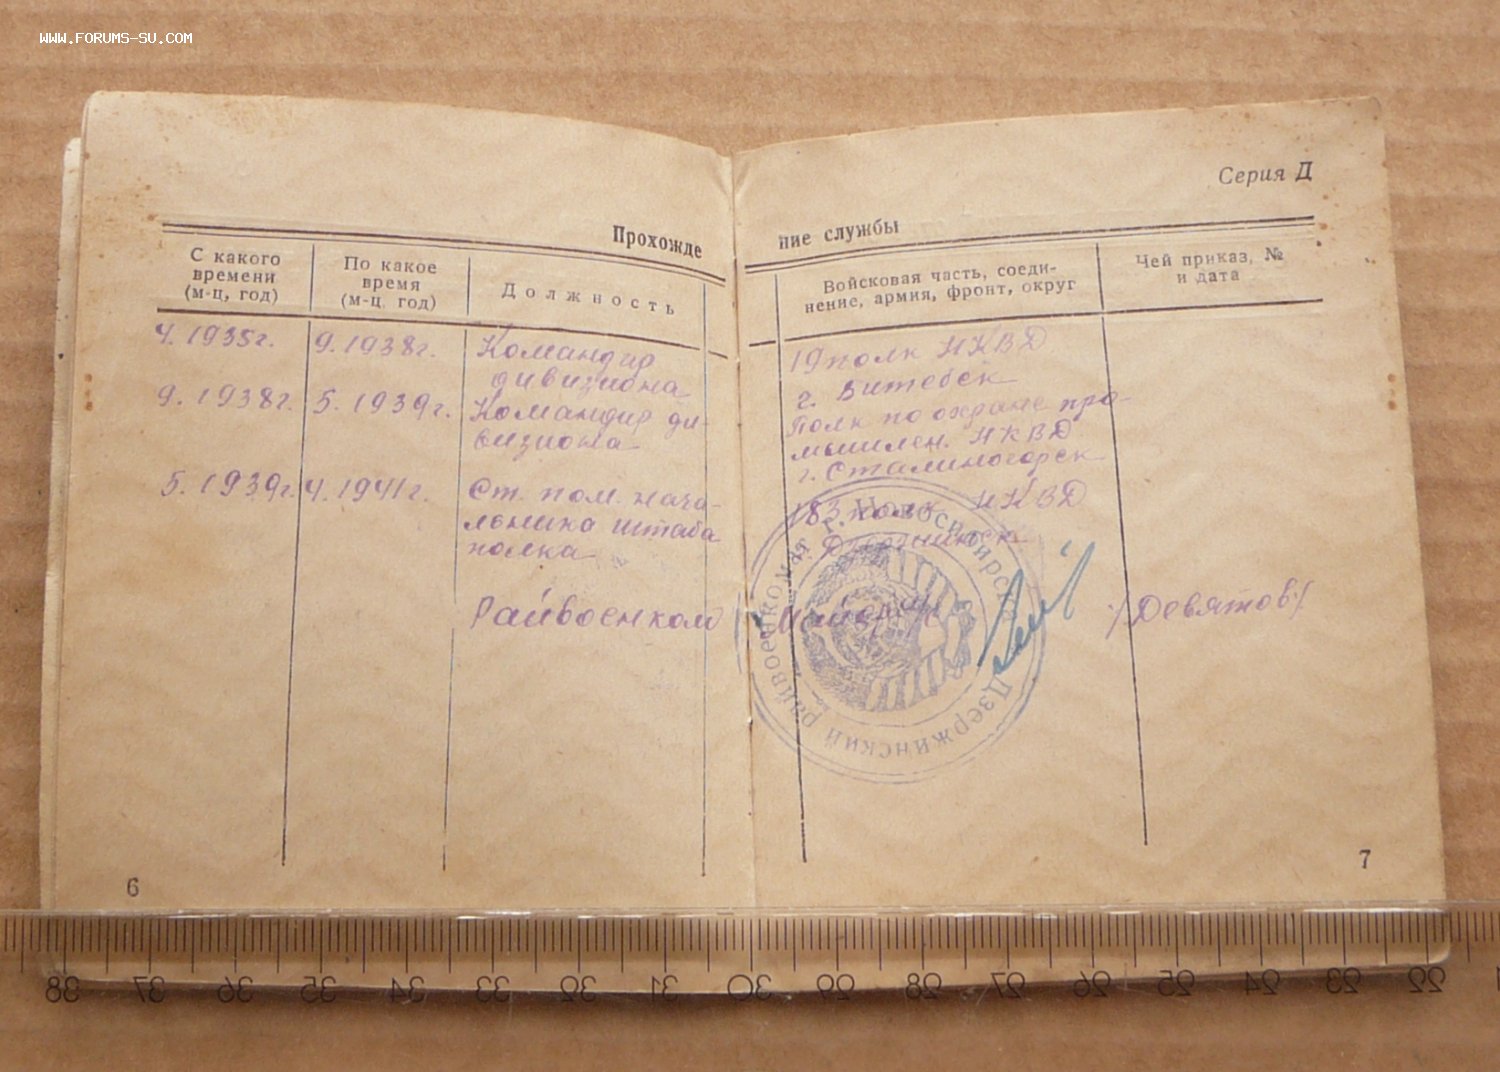 WWW.FORUMS-SU.COM
Серия Д
Прохожде
ние службы
С какого
времени
(м-ц, год)
По какое
время
(м-ц. год)
Должность
Войсковая часть, соеди-
нение, армия, фронт, округ
Чей приказ, №
и дата
4. 1935г. 9. 1938г. Командир
дивизиона
19 полк НКВД
г. Витебск
9. 1938г. 5. 1939г. Командир ди-
визиона
Полк по охране про-
мышлен. НКВД
г. Сталиногорск
5. 1939г. 4. 1941г. Ст. пом. нача-
льника штаба
полка
183 полк НКВД
г. Дзержинск
Райвоенком Майор /Девятов/
Дзержинский райвоенкомат г. Новосибирска
6
7
38 37 36 35 34 33 32 31 30 29 28 27 26 25 24 23 22